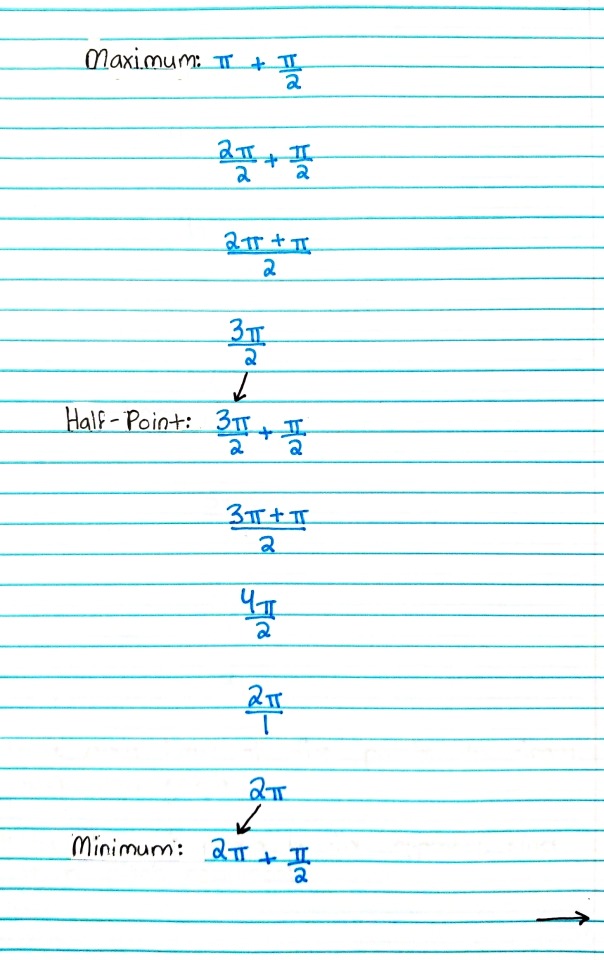 Maximum: π + π/2
2π/2 + π/2
(2π + π)/2
3π/2
↙
Half-Point: 3π/2 + π/2
(3π + π)/2
4π/2
2π/1
2π
↙
Minimum: 2π + π/2
→